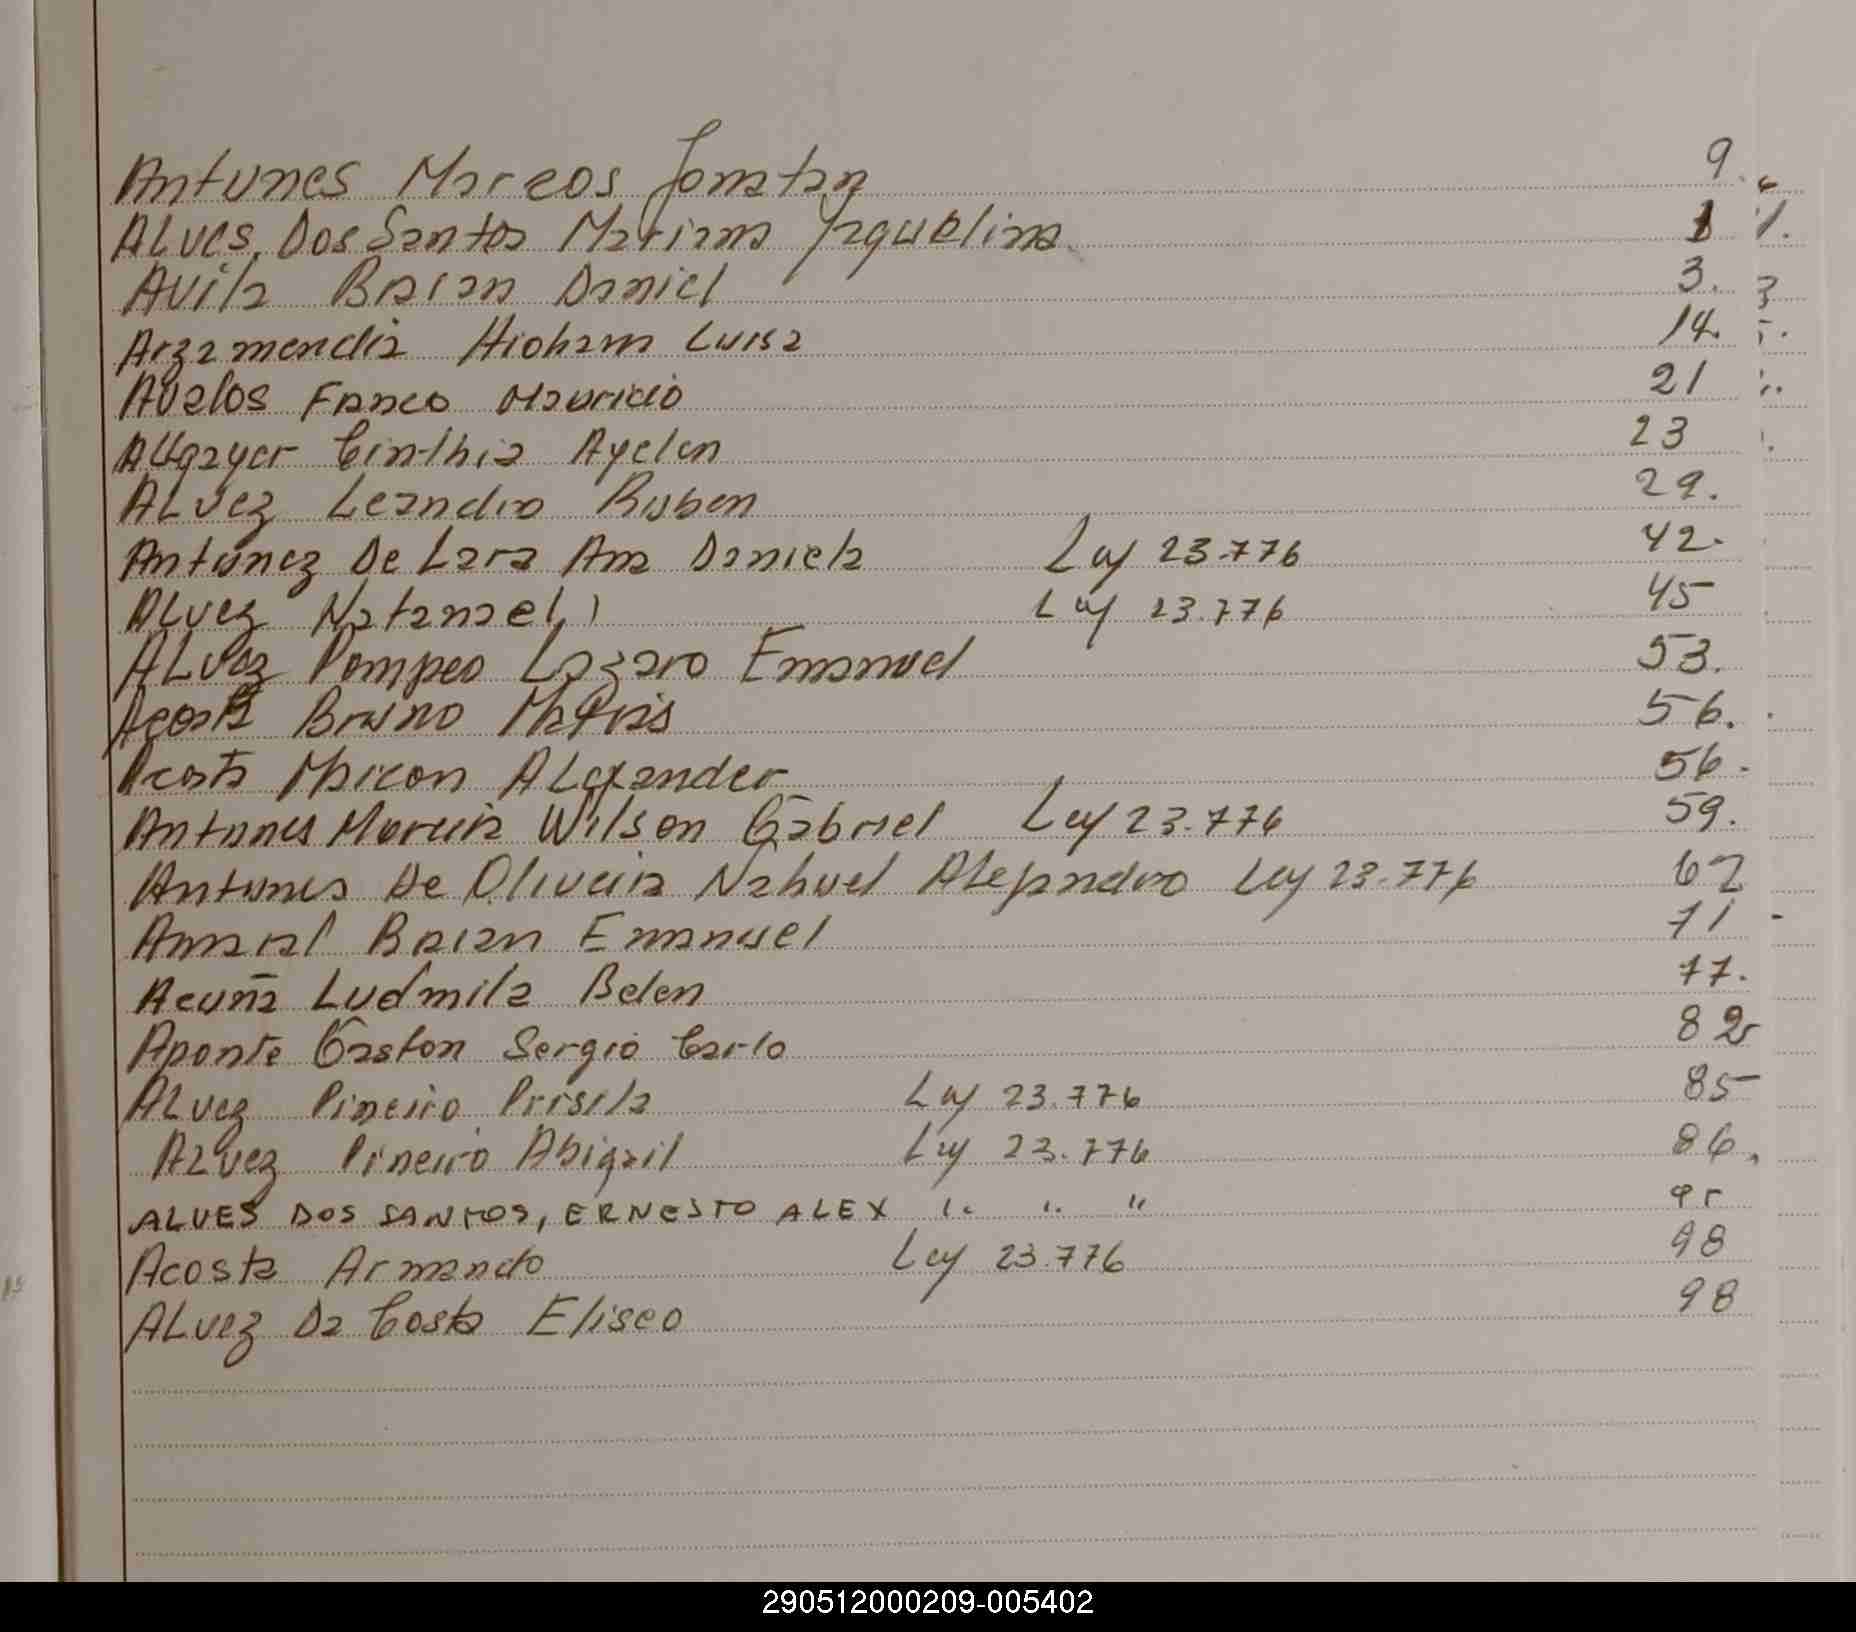 Antunes Marcos Jonatan 9.
ALves Dos Santos Mariana Jaquelina 1
Avila Braian Daniel 3.
Arzamendia Hioham Luisa 14.
Avalos Franco Mauricio 21
Allgayer Cinthia Ayelen 23
ALvez Leandro Ruben 29.
Antunez De Lara Ana Daniela Ley 23.776 42.
ALvez Natanael Ley 23.776 45
ALvez Pompeo Lazaro Emanuel 53.
Acosta Bruno Matias 56.
Acosta Maicon ALexander 56.
Antunes Moreira Wilson Gabriel Ley 23.776 59.
Antunes De Oliveira Nahuel Alejandro Ley 23.776 62
Amaral Braian Emanuel 71
Acuña Ludmila Belen 77.
Aponte Gaston Sergio Carlo 82
ALvez Pineiro Prisila Ley 23.776 85
ALvez Pineiro Abigail Ley 23.776 86.
ALVES DOS SANTOS, ERNESTO ALEX " " " 95
Acosta Armando Ley 23.776 98
ALvez Da Costa Eliseo 98
290512000209-005402